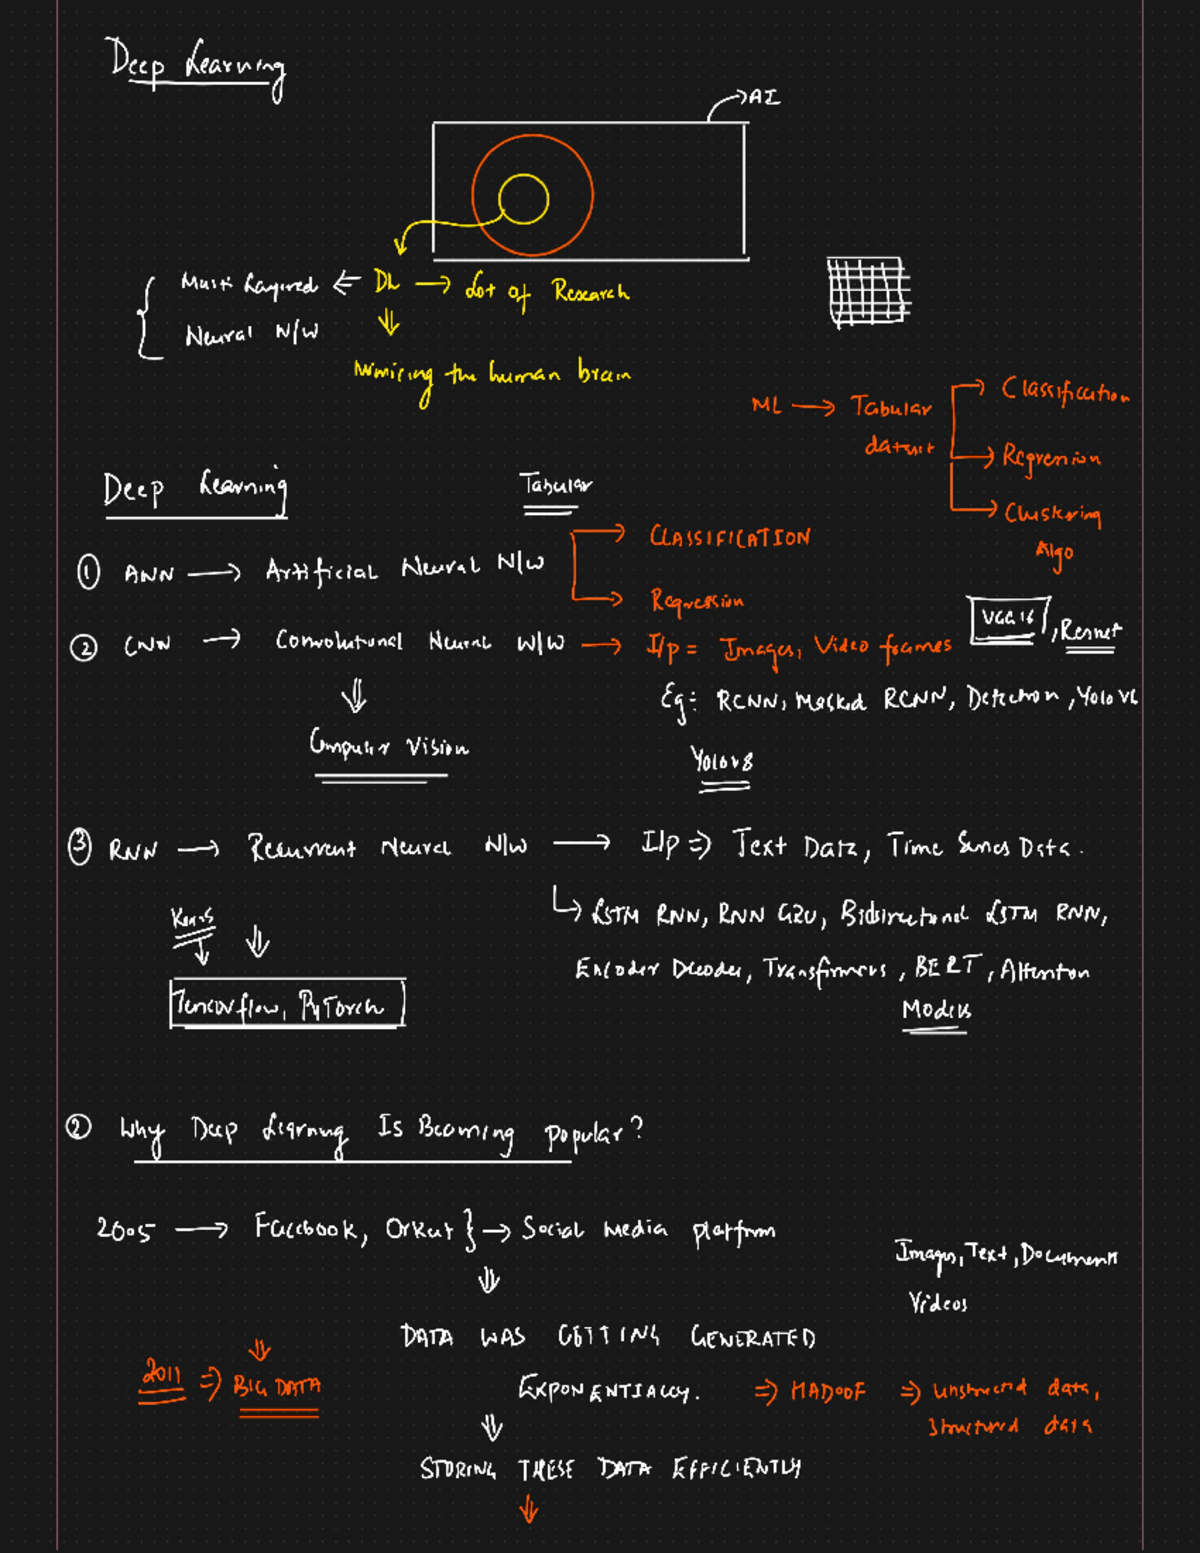 Deep Learning
→AI
Multi Layered ← DL → Lot of Research
Neural N/W
Mimicing the human brain
ML → Tabular dataset
Classification
Regression
Clustering
Algo
Deep Learning
Tabular
① ANN → Artificial Neural N/W
CLASSIFICATION
Regression
② CNN → Convolutional Neural N/W → I/p = Images, Video frames
VGG16, Resnet
Eg: RCNN, Masked RCNN, Detection, Yolo V6
Computer Vision
Yolo v8
③ RNN → Recurrent Neural N/W → I/p ⇒ Text Data, Time Series Data.
↳ LSTM RNN, RNN GRU, Bidirectional LSTM RNN,
Keras
Encoder Decoder, Transformers, BERT, Attention
Tensorflow, PyTorch
Models
② Why Deep Learning Is Becoming popular?
2005 → Facebook, Orkut } → Social Media platform
Images, Text, Documents
Videos
DATA WAS GETTING GENERATED
2011 ⇒ BIG DATA
EXPONENTIALLY. ⇒ HADOOF ⇒ Unstructed data,
Structured data
STORING THESE DATA EFFICIENTLY